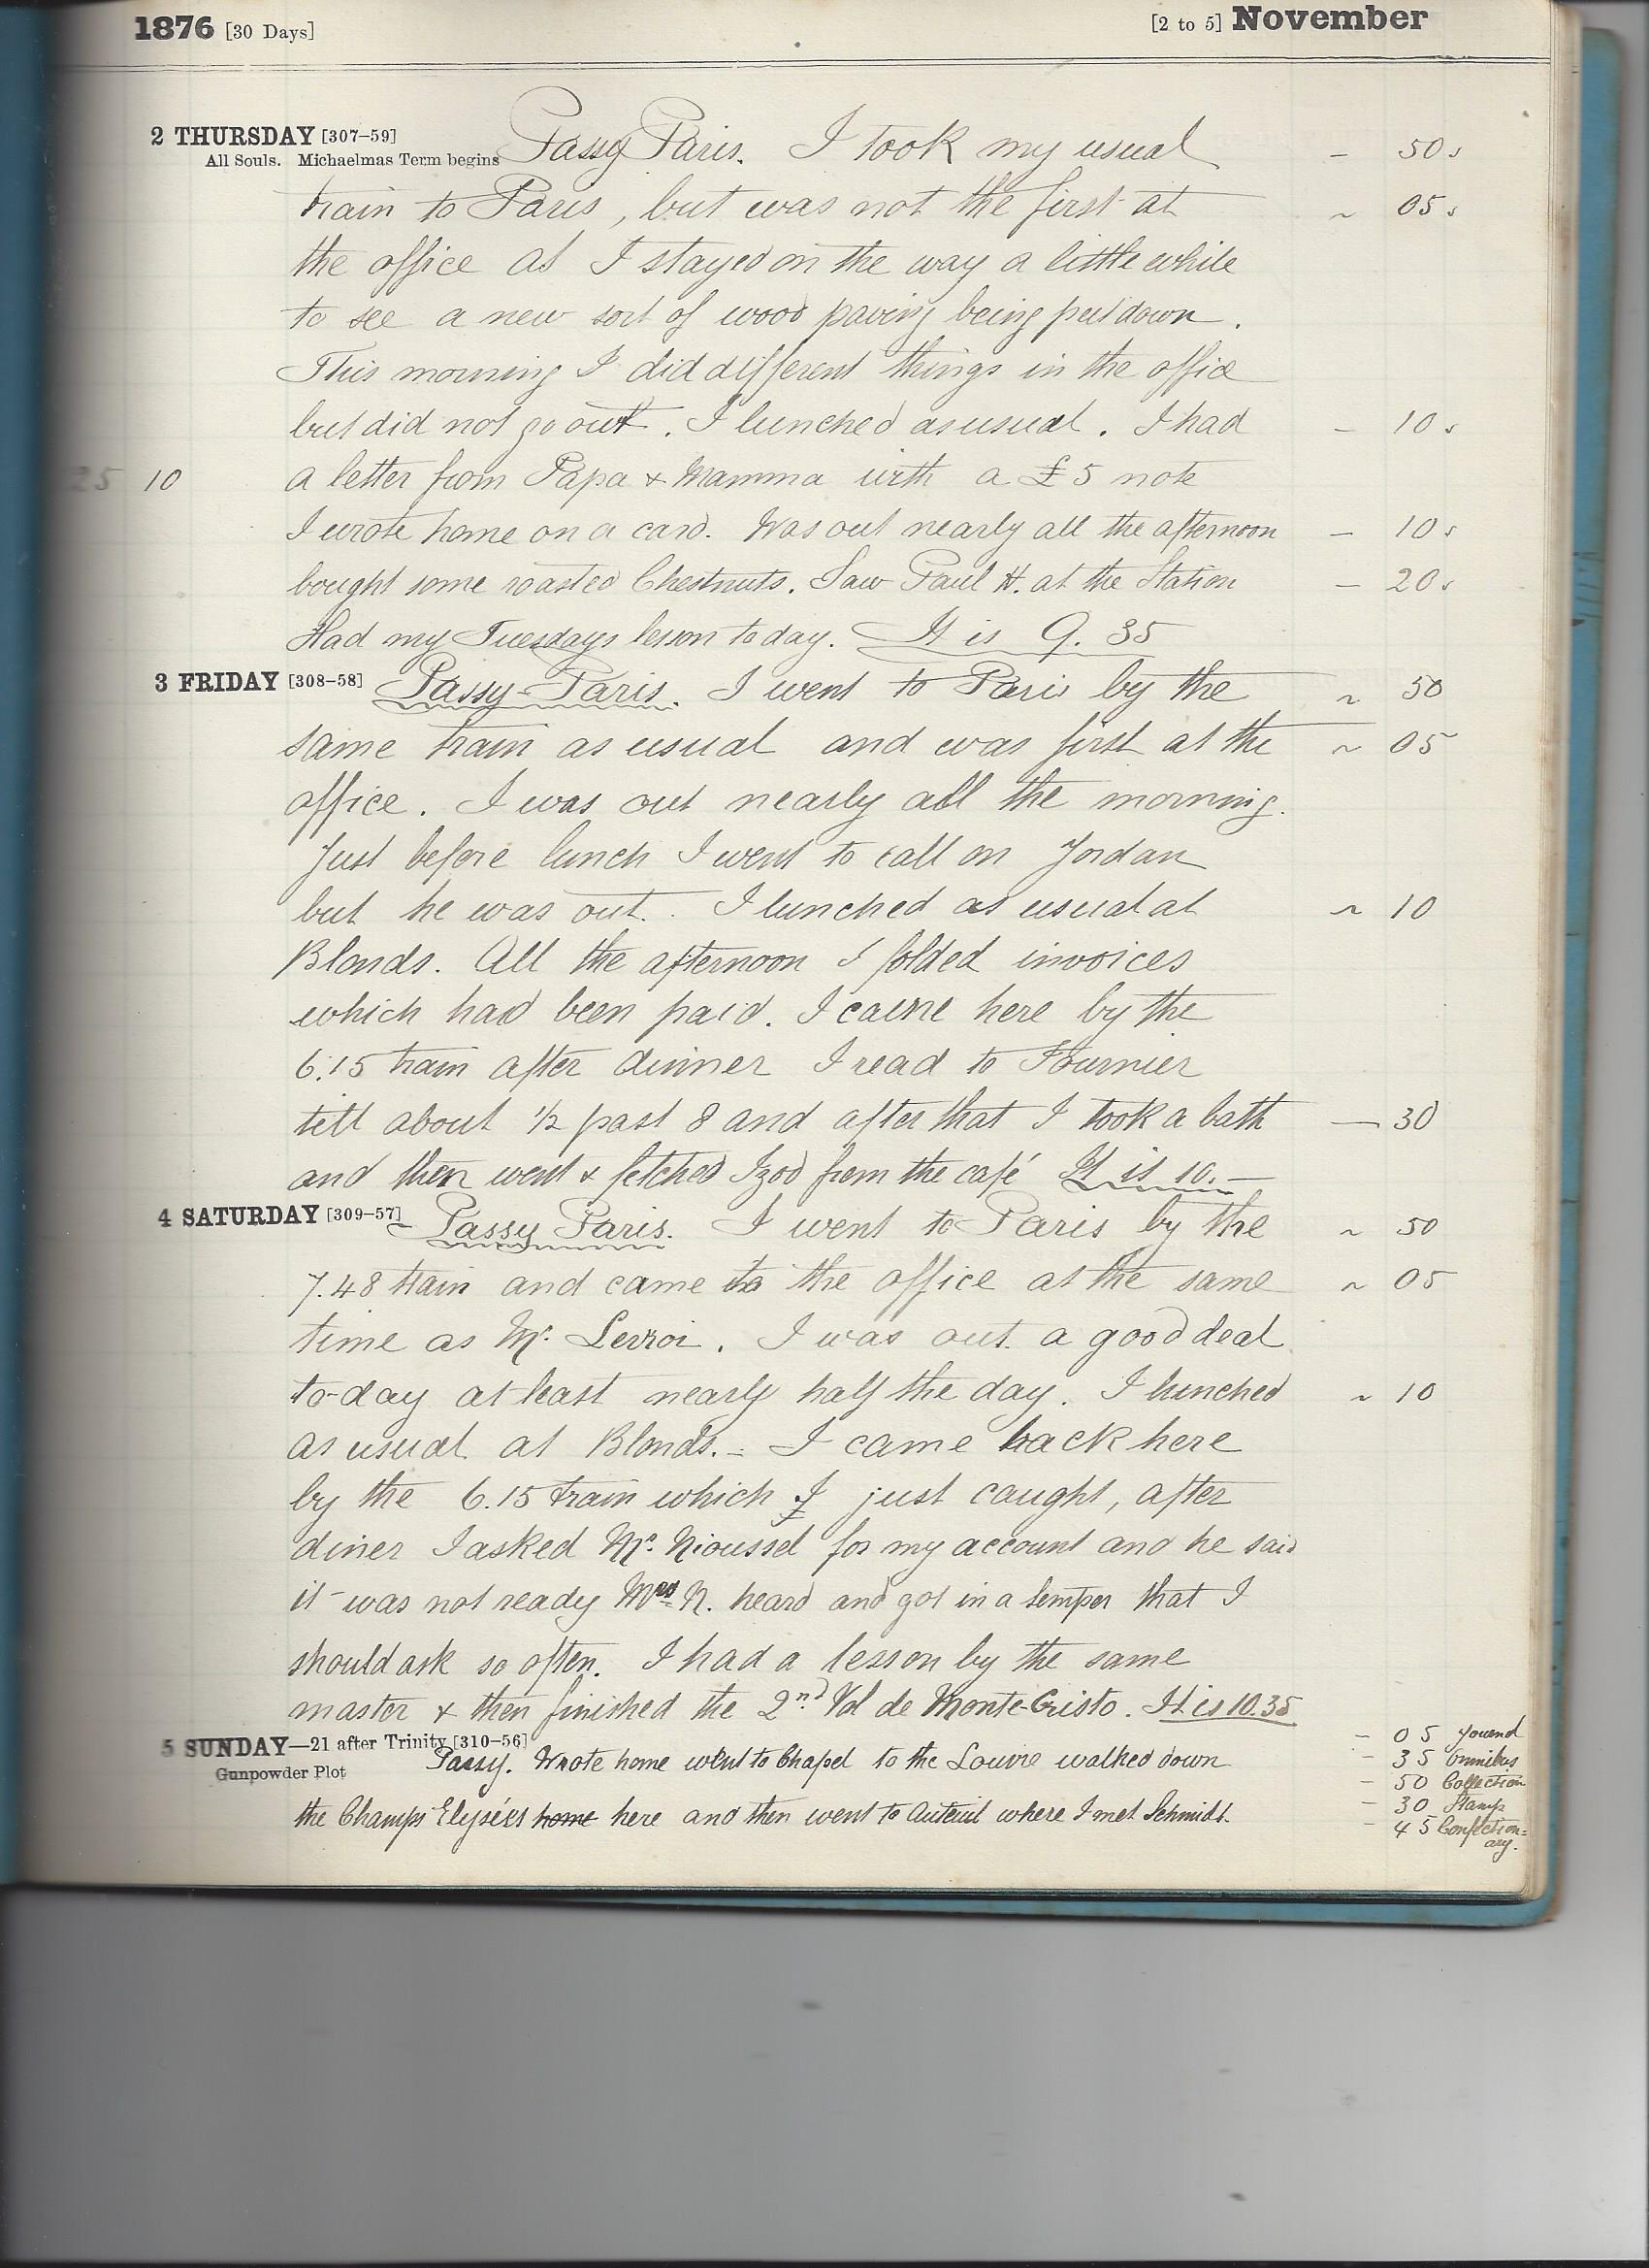 1876 [30 Days] [2 to 5] November
2 THURSDAY [307–59] Passy Paris. I took my usual – 50s
All Souls. Michaelmas Term begins
train to Paris, but was not the first at ~ 05s
the office as I stayed on the way a little while
to see a new sort of wood paving being put down.
This morning I did different things in the office
but did not go out. I lunched as usual. I had – 10s
25 10 a letter from Papa & Mamma with a £5 note
I wrote home on a card. Was out nearly all the afternoon – 10s
bought some roasted Chestnuts. Saw Paul H. at the Station – 20s
Had my Tuesdays lesson today. It is 9.35
3 FRIDAY [308–58] Passy–Paris. I went to Paris by the ~ 50
same train as usual and was first at the ~ 05
office. I was out nearly all the morning.
Just before lunch I went to call on Jordan
but he was out. I lunched as usual at ~ 10
Blonds. All the afternoon I folded invoices
which had been paid. I came here by the
6.15 train after dinner I read to Fournier
till about ½ past 8 and after that I took a bath — 30
and then went & fetched Izod from the café It is 10.–
4 SATURDAY [309–57] Passy Paris. I went to Paris by the ~ 50
7.48 train and came to the office at the same ~ 05
time as Mr. Lerroi. I was out a good deal
to-day at least nearly half the day. I lunched ~ 10
as usual at Blonds.– I came back here
by the 6.15 train which I just caught, after
diner I asked Mr. Nioussel for my account and he said
it was not ready Mrs N. heard and got in a temper that I
should ask so often. I had a lesson by the same
master & then finished the 2nd Vol de Monte-Cristo. It is 10.35
5 SUNDAY—21 after Trinity [310–56] – 05
Gunpowder Plot Passy. Wrote home went to Chapel to the Louvre walked down – 35 Omnibus
– 50 Collection
the Champs Elysées home here and then went to Auteuil where I met Schmidt. – 30 Stamp
– 45 Confection=
ary.